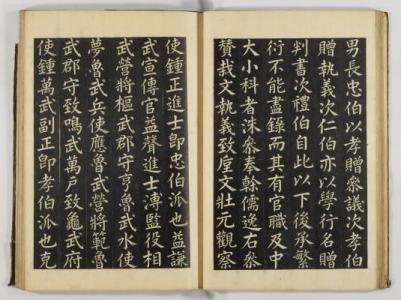 男長忠伯以孝贈叅議次孝伯
贈執義次仁伯亦以學行名贈
判書次禮伯自此以下後承繁
衍不能盡錄而其有官職及中
大小科者洙叅奉榦儒逸右叅
贊栽文執義致垕文壯元觀察
使鍾正進士卽忠伯派也益謙
武宣傳官益聲進士溥監役相
武營將樞武郡守亨魯武水使
夢魯武兵使應魯武營將範魯
武郡守致鳴武萬戶致龜武府
使鍾萬武副正卽孝伯派也克